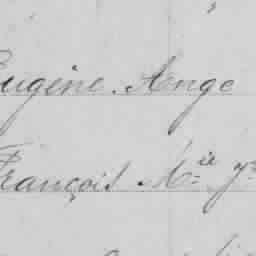 Eugène. Ange
François M.ie